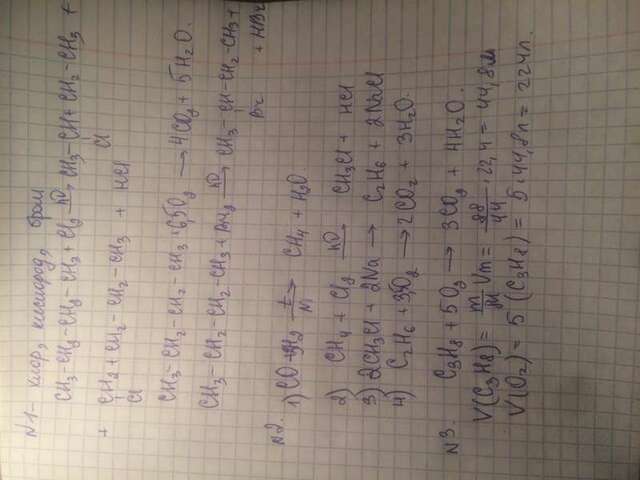 N1- хлор, кислород, бром
CH3-CH2-CH2-CH3 + Cl2 hν→ CH3-CH+CH2-CH3 +
Cl
+ CH2+CH2-CH2-CH3 + HCl
Cl
CH3-CH2-CH2-CH3 + 6,5O2 → 4CO2 + 5H2O.
CH3-CH2-CH2-CH3 + Br2 hν→ CH3-CH-CH2-CH3 +
Br + HBr
N2.
1) CO + 3H2 t→ CH4 + H2O
2) CH4 + Cl2 hν→ CH3Cl + HCl
3) 2CH3Cl + 2Na → C2H6 + 2NaCl
4) C2H6 + 3,5O2 → 2CO2 + 3H2O.
N3. C3H8 + 5O2 → 3CO2 + 4H2O.
V(C3H8) = m/M Vm = 88/44 · 22,4 = 44,8л
V(O2) = 5 (C3H8) = 5 · 44,8л = 224л.